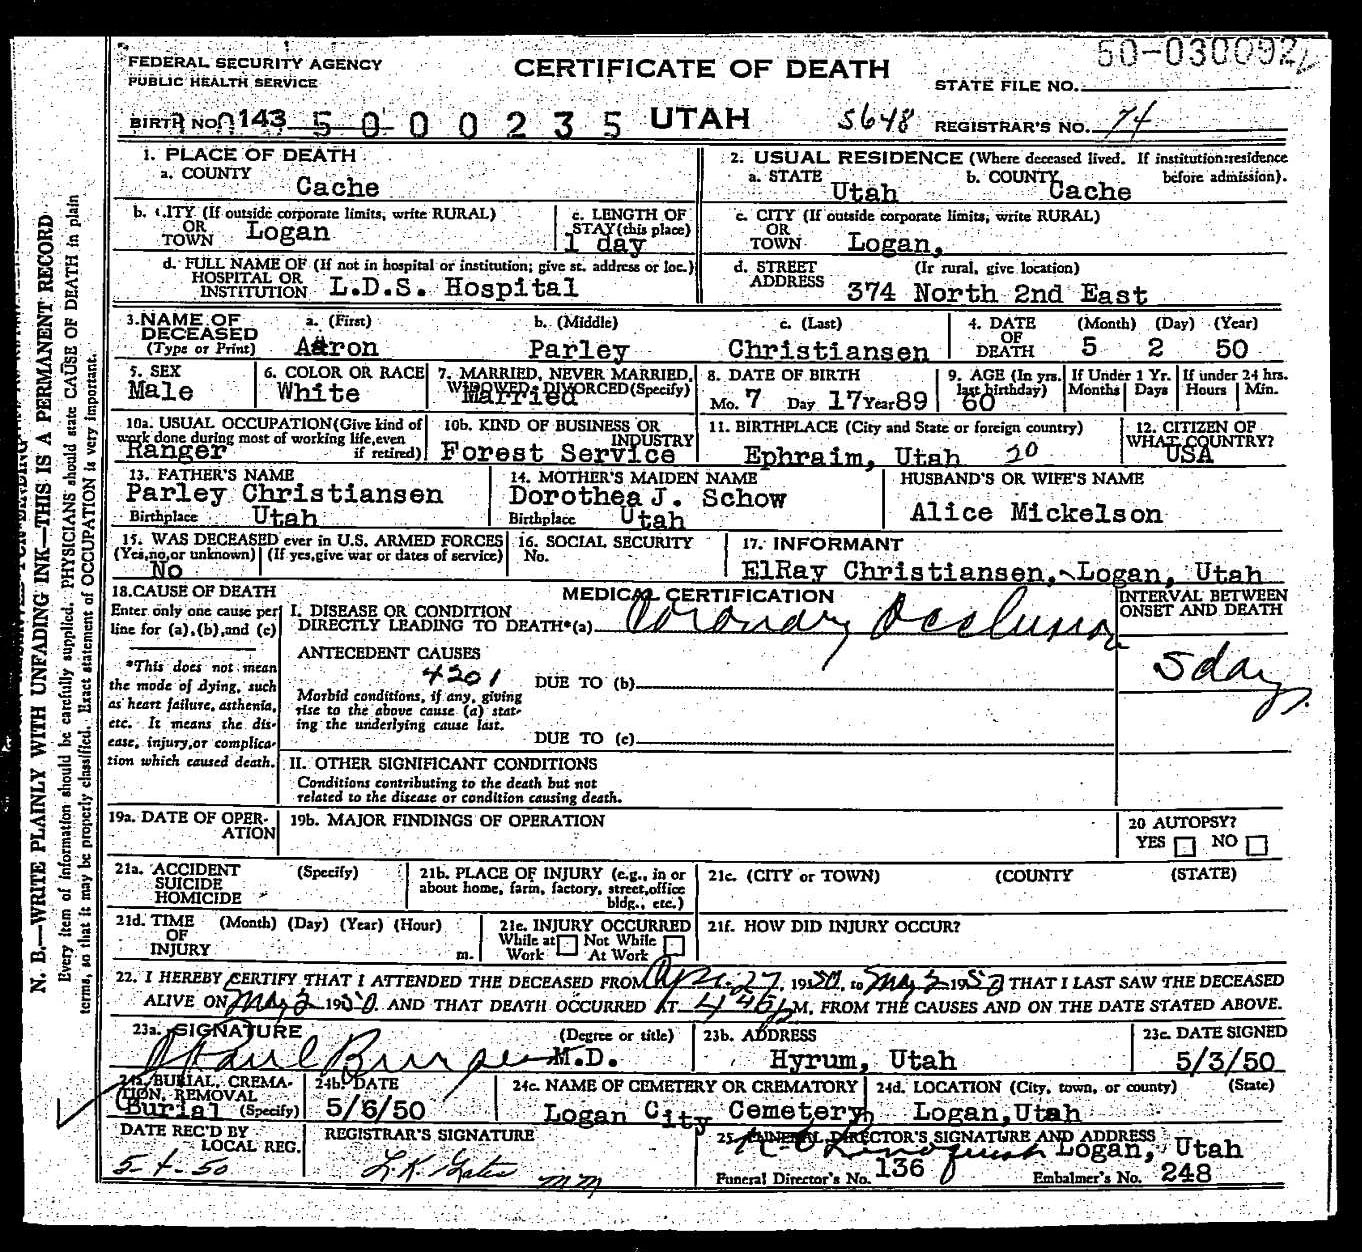 50-030092
FEDERAL SECURITY AGENCY
PUBLIC HEALTH SERVICE
CERTIFICATE OF DEATH
STATE FILE NO.
BIRTH NO. 143 5000235 UTAH 5648 REGISTRAR'S NO. 74
1. PLACE OF DEATH
a. COUNTY Cache
2. USUAL RESIDENCE (Where deceased lived. If institution:residence before admission).
a. STATE Utah b. COUNTY Cache
b. CITY (If outside corporate limits, write RURAL)
OR TOWN Logan
c. LENGTH OF STAY (this place) 1 day
c. CITY (If outside corporate limits, write RURAL)
OR TOWN Logan,
d. FULL NAME OF (If not in hospital or institution; give st. address or loc.)
HOSPITAL OR INSTITUTION L.D.S. Hospital
d. STREET ADDRESS (Ir rural, give location)
374 North 2nd East
3.NAME OF DECEASED (Type or Print)
a. (First) Aaron b. (Middle) Parley c. (Last) Christiansen
4. DATE OF DEATH (Month) (Day) (Year) 5 2 50
5. SEX Male
6. COLOR OR RACE White
7. MARRIED, NEVER MARRIED, WIDOWED, DIVORCED (Specify) Married
8. DATE OF BIRTH Mo. 7 Day 17 Year 89
9. AGE (In yrs. last birthday) 60
If Under 1 Yr. Months Days
If under 24 hrs. Hours Min.
10a. USUAL OCCUPATION(Give kind of work done during most of working life,even if retired) Ranger
10b. KIND OF BUSINESS OR INDUSTRY Forest Service
11. BIRTHPLACE (City and State or foreign country)
Ephraim, Utah 20
12. CITIZEN OF WHAT COUNTRY? USA
13. FATHER'S NAME Parley Christiansen
Birthplace Utah
14. MOTHER'S MAIDEN NAME Dorothea J. Schow
Birthplace Utah
HUSBAND'S OR WIFE'S NAME
Alice Mickelson
15. WAS DECEASED ever in U.S. ARMED FORCES
(Yes,no,or unknown) (If yes,give war or dates of service)
No
16. SOCIAL SECURITY No.
17. INFORMANT
ElRay Christiansen, Logan, Utah
18.CAUSE OF DEATH
Enter only one cause per line for (a),(b),and (c)
*This does not mean the mode of dying, such as heart failure, asthenia, etc. It means the disease, injury,or complication which caused death.
MEDICAL CERTIFICATION
I. DISEASE OR CONDITION
DIRECTLY LEADING TO DEATH*(a) Coronary Occlusion
INTERVAL BETWEEN ONSET AND DEATH
5 days.
ANTECEDENT CAUSES
4201
Morbid conditions, if any, giving rise to the above cause (a) stating the underlying cause last.
DUE TO (b)
DUE TO (c)
II. OTHER SIGNIFICANT CONDITIONS
Conditions contributing to the death but not related to the disease or condition causing death.
19a. DATE OF OPERATION
19b. MAJOR FINDINGS OF OPERATION
20 AUTOPSY?
YES NO
21a. ACCIDENT SUICIDE HOMICIDE (Specify)
21b. PLACE OF INJURY (e.g., in or about home, farm, factory, street,office bldg., etc.)
21c. (CITY or TOWN) (COUNTY (STATE)
21d. TIME OF INJURY (Month) (Day) (Year) (Hour) m.
21e. INJURY OCCURRED
While at Work Not While At Work
21f. HOW DID INJURY OCCUR?
22. I HEREBY CERTIFY THAT I ATTENDED THE DECEASED FROM Apr. 27, 1950, to May 2 1950 THAT I LAST SAW THE DECEASED
ALIVE ON May 2 1950 AND THAT DEATH OCCURRED AT 4:46 p M, FROM THE CAUSES AND ON THE DATE STATED ABOVE.
23a. SIGNATURE (Degree or title)
M.D.
23b. ADDRESS
Hyrum, Utah
23c. DATE SIGNED
5/3/50
24a. BURIAL, CREMATION, REMOVAL (Specify) Burial
24b. DATE
5/6/50
24c. NAME OF CEMETERY OR CREMATORY
Logan City Cemetery
24d. LOCATION (City, town, or county) (State)
Logan,Utah
DATE REC'D BY LOCAL REG.
5-4-50
REGISTRAR'S SIGNATURE
25. FUNERAL DIRECTOR'S SIGNATURE AND ADDRESS
Logan, Utah
Funeral Director's No. 136 Embalmer's No. 248
N. B.—WRITE PLAINLY WITH UNFADING INK—THIS IS A PERMANENT RECORD
Every item of information should be carefully supplied. PHYSICIANS should state CAUSE OF DEATH in plain
terms, so that it may be properly classified. Exact statement of OCCUPATION is very important.